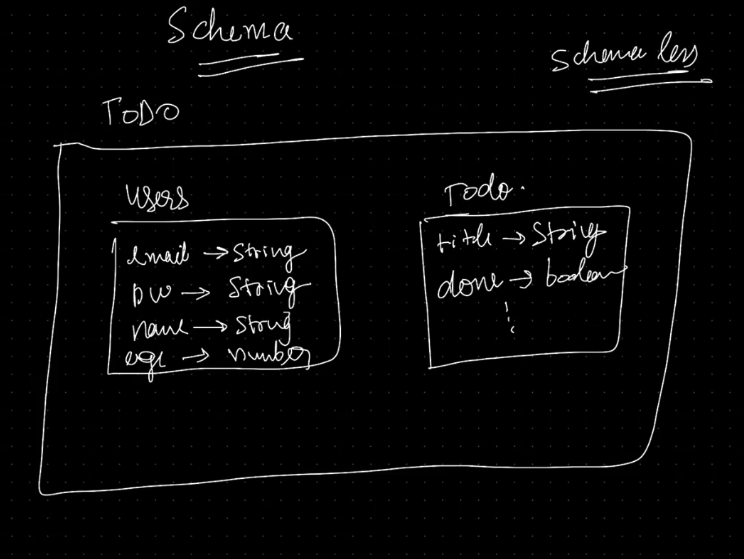 Schema
Schema less
TODO
Users
email → String
pw → String
name → String
age → number
Todo.
title → String
done → boolean